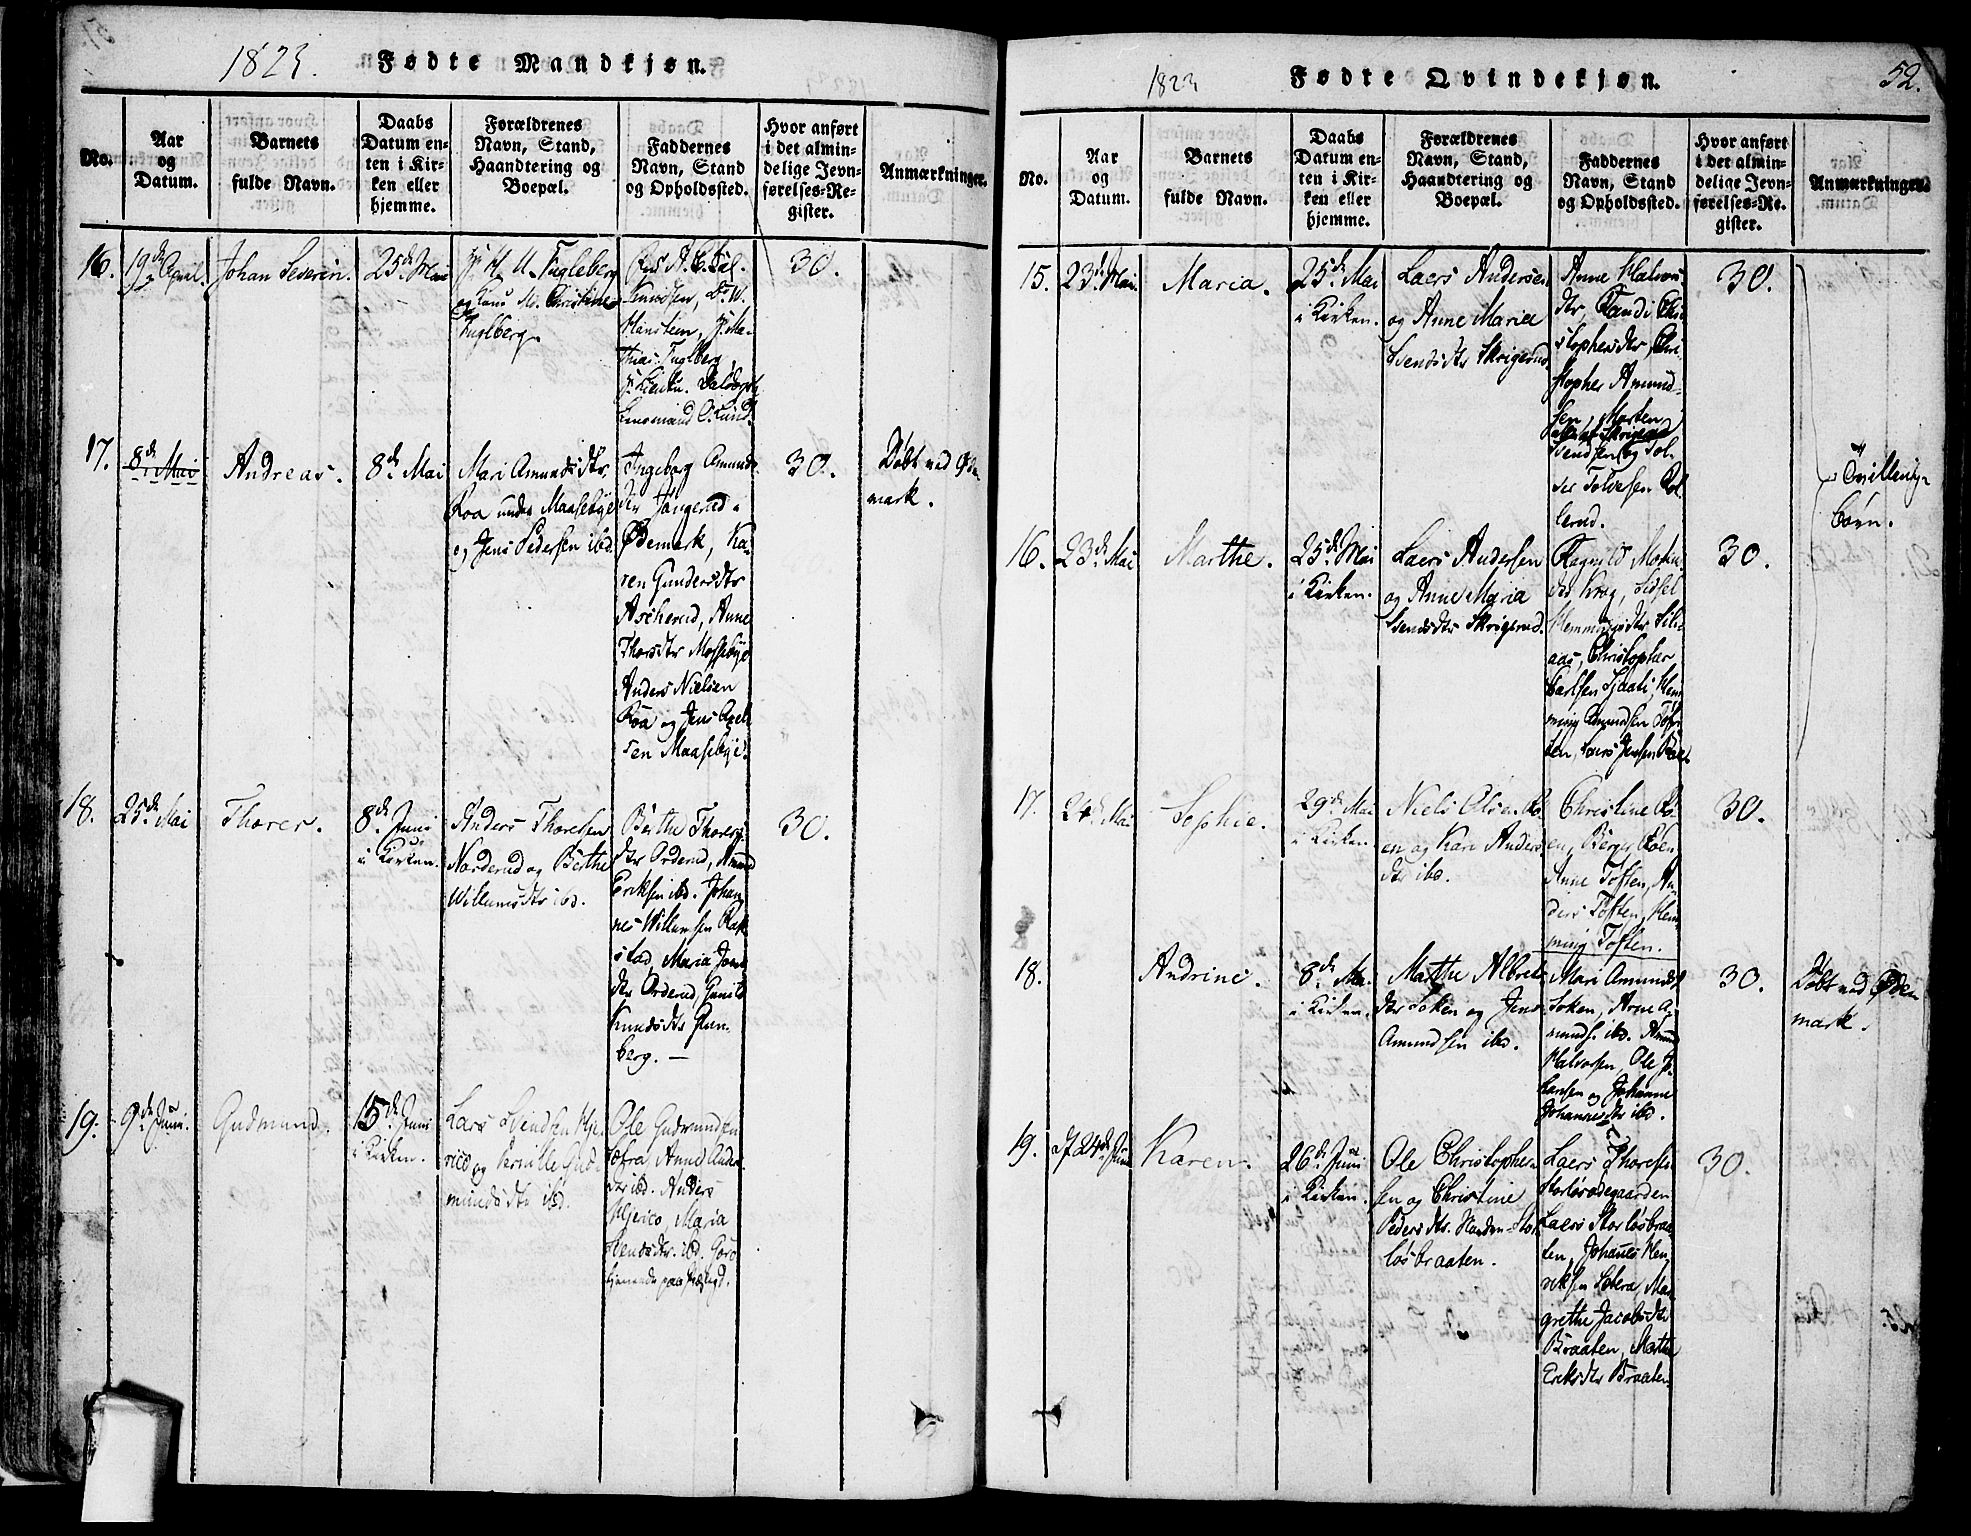 1823.
Fødte Mandkjøn.
No.
Aar
og
Datum.
Barnets
fulde Navn.
Daabs
Datum en-
ten i Kir-
ken eller
hjemme.
Forældrenes
Navn, Stand,
Haandtering og
Boepæl.
Faddernes
Navn, Stand
og Opholdssted.
Hvor anført
i det almin-
delige Jevn-
førelses-Re-
gister.
Anmærkninger.
16.
19de April.
Johan Severin.
25de Mai
Fugleberg
Christine
Fuglberg.
Hanstein,
thias Fuglberg
Lensmand O. Lund.
30.
17.
8de Mai
Andreas.
8de Mai
Mari Amundsdtr
Roa under Maasebye
og Jens Pedersen ibd.
Ingeborg Amunds-
dtr
Ødemark, Ka-
ren Gundersdtr
Ascherud, Anne
Thorsdtr Massebye
Anders Nielsen
Roa og Jens Axel-
sen Maasebye.
30.
Døbt ved Øde-
mark.
18.
25de Mai
Thorer.
8de Juni
i Kirken.
Anders Thoresen
Norderud og Berthe
Willumsdtr ibd.
Berthe Thorers-
dtr Orderud, Amund
Eriksen ibd. Johan-
nes Willumsen Rak-
stad, Maria Jons-
dtr Orderud, Gunild
Knudsdtr
berg. —
30.
19.
9de Juni.
Gudmund.
15de Juni
i Kirken.
Lars Svendsen Hje-
rico og Pernille Gud-
mundsdtr ibd.
Ole Gudmundsen
Anne Anders-
dtr ibd. Anders
Hjerico, Maria
Svendsdtr. ibd. Goro
tjenende paa
1823
Fødte Qvindekjøn.
52.
No.
Aar
og
Datum.
Barnets
fulde Navn.
Daabs
Datum en-
ten i Kir-
ken eller
hjemme.
Forældrenes
Navn, Stand,
Haandtering og
Boepæl.
Faddernes
Navn, Stand
og Opholdssted.
Hvor anført
i det almin-
delige Jevn-
førelses-Re-
gister.
Anmærkninger.
15.
23de Mai
Maria.
25de Mai
i Kirken.
Laers Andersen
og Anne Maria
Svendsdtr Skrigerud
Anne Halvors-
dtr, Randi Chri-
stophersdtr, Chri-
stopher Amund-
sen, Morten
Svendsen og Tol-
lef Tolvesen Kol-
lerud.
30.
Tvillinge-
børn.
16.
23de Mai
Marthe.
25de Mai
i Kirken.
Laers Andersen
og Anne Maria
Svendsdtr Skrigerud.
Ragnild Morten-
dtr Krog, Sidsel
Hemmingsdtr
aas, Christopher
Carlsen Hem-
ming Amundsen Tof-
ten, Laers Jensen
30.
17.
24de Mai
Sophie.
29de Mai
i Kirken.
Niels Olsen Ro-
en og Kari Anders-
dtr ibd.
Christine Ro-
en, Børger Roen
Anne Toften, An-
ders Toften, Hem-
ming Toften.
30.
18.
Andrine.
8de Mai
i Kirken.
Mathe Albrets-
dtr Soken og Jens
Amundsen ibd.
Mari Amundsd.
Soken, Arne A-
munds. ibd. Amund
Halvorsen, Ole Jo-
hansen og Johanne
Johannesdtr ibd.
30.
Døbt ved Øde-
mark.
19.
24de Juni
Karen.
26de Juni
i Kirken.
Ole Christopher-
sen og Christine
Pedersdtr.
løsbraaten.
Laers Thoresen
Storløsødegaarden
Laers Storløsbraa-
ten, Johannes Hen-
riksen Mar-
grethe Jacobsdtr
Braaten, Marthe
Eriksdtr Braaten.
30.